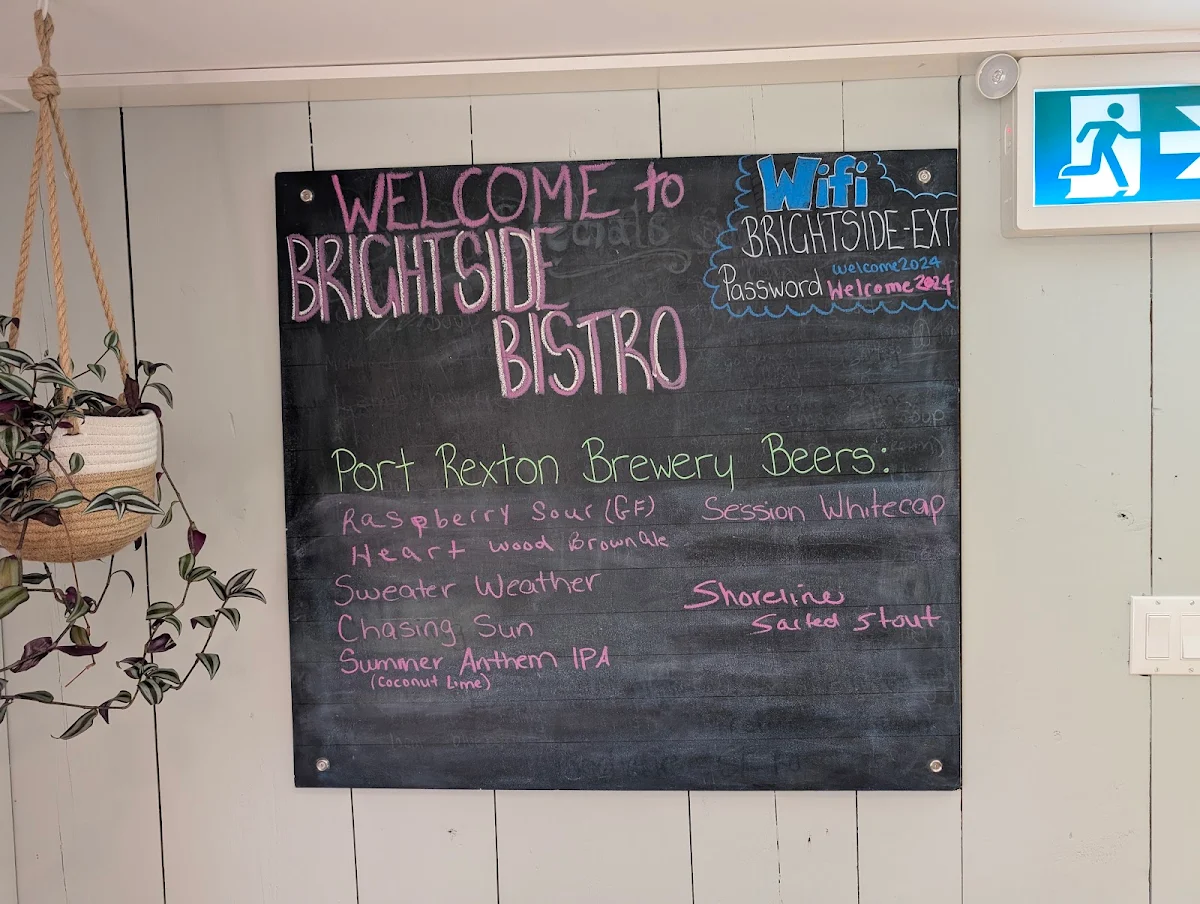 WELCOME to
BRIGHTSIDE
BISTRO
Wifi
BRIGHTSIDE-EXT
welcome2024
Password Welcome2024
Port Rexton Brewery Beers:
Raspberry Sour (GF)
Heart wood Brown ale
Sweater Weather
Chasing Sun
Summer Anthem IPA
(Coconut Lime)
Session Whitecap
Shoreline
Salted Stout